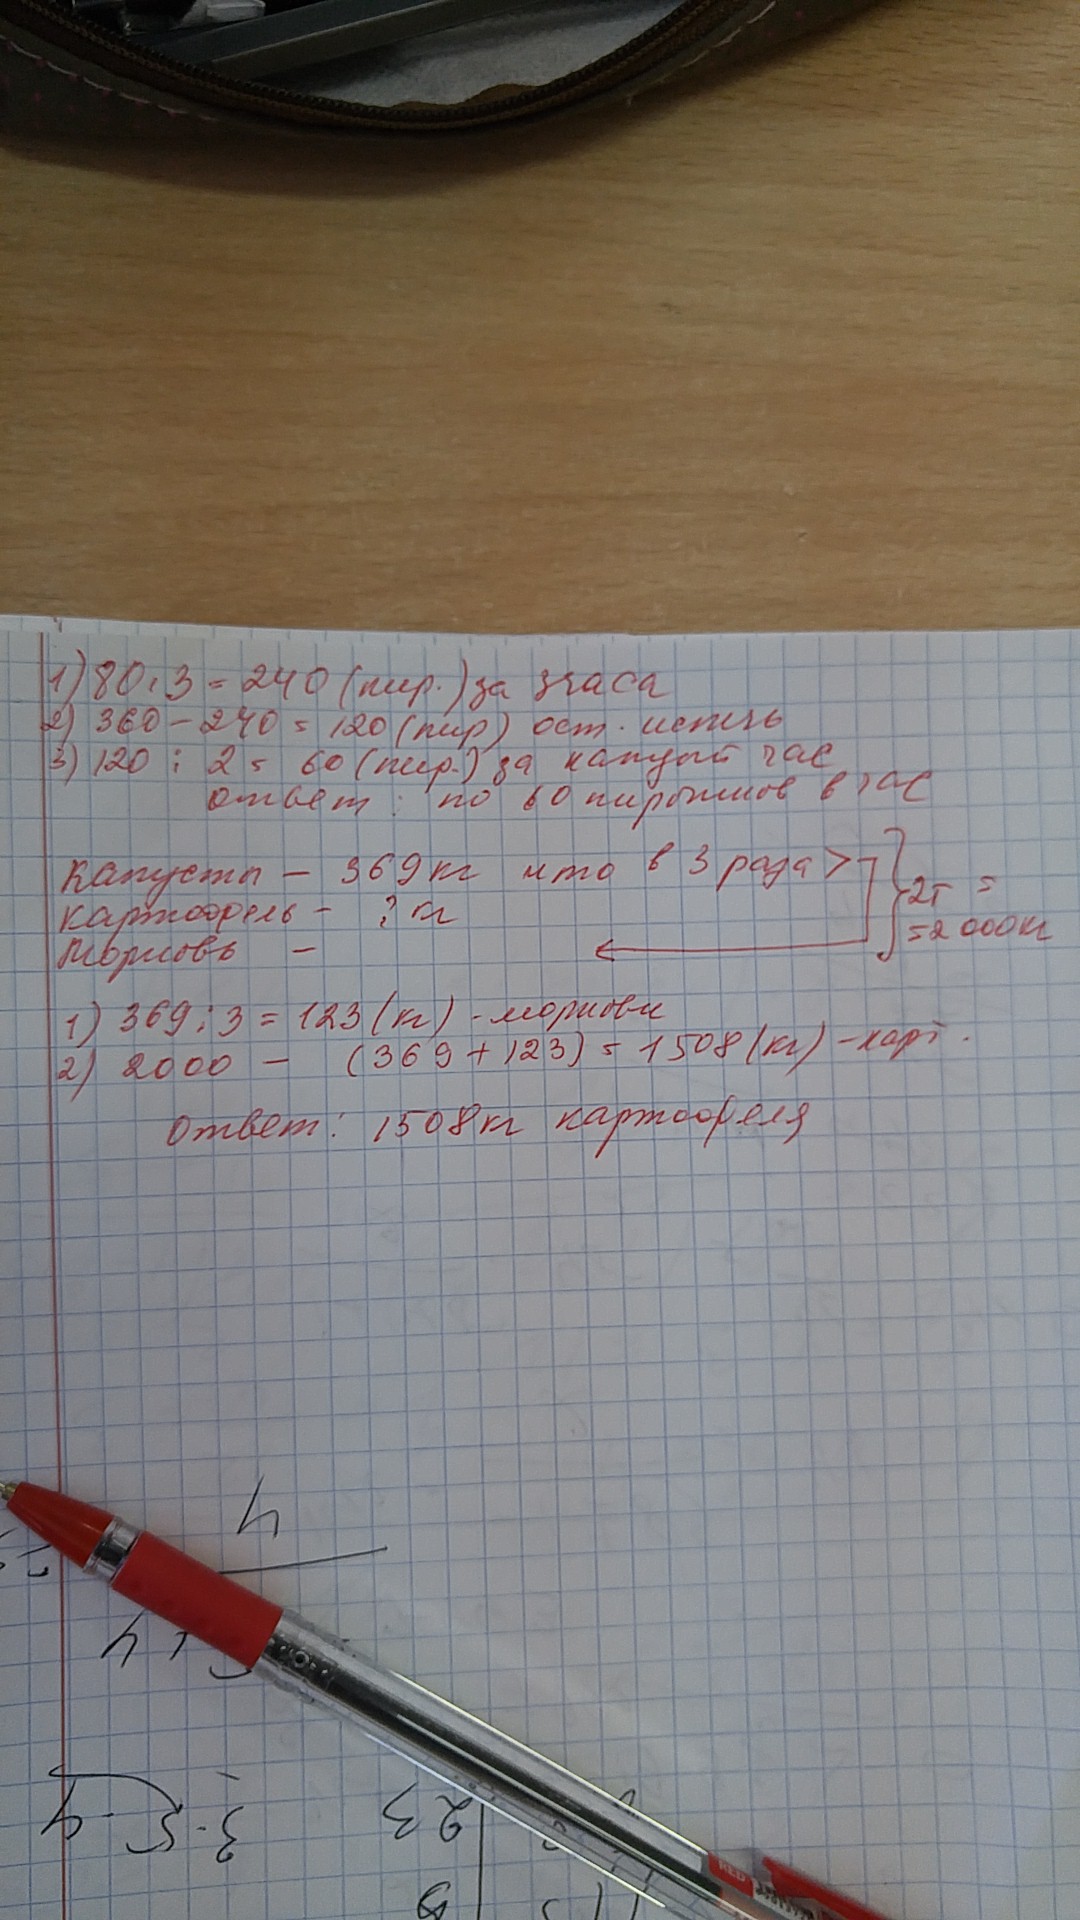 1) 80 · 3 = 240 (пир.) за 3 часа
2) 360 - 240 = 120 (пир) ост. испечь
3) 120 : 2 = 60 (пир.) за каждый час
Ответ: по 60 пирожков в час
Капусты - 369 кг что в 3 раза > } 2т =
Картофель - ? кг = 2 000 кг
Морковь -
1) 369 : 3 = 123 (кг) - моркови
2) 2000 - (369 + 123) = 1508 (кг) - карт.
Ответ: 1508 кг картофеля
4
3·5·4
23
RED